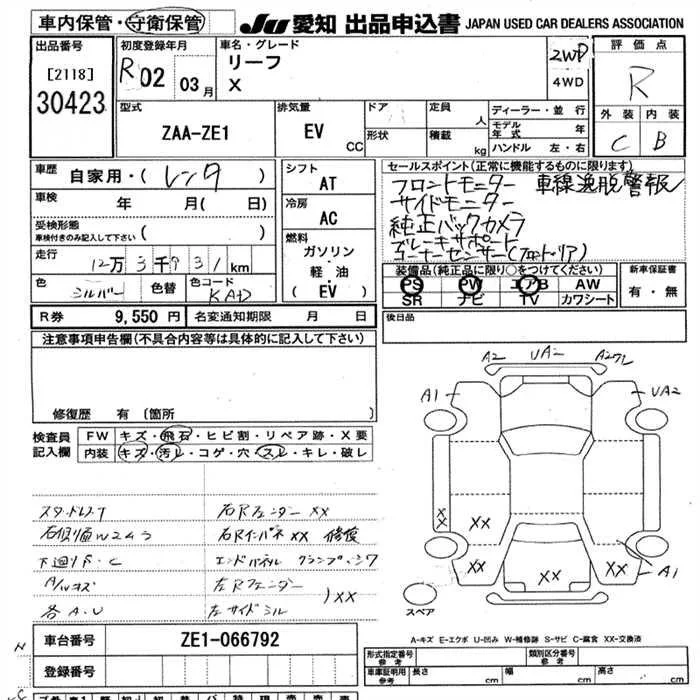 車内保管・守衛保管
JU 愛知 出品申込書 JAPAN USED CAR DEALERS ASSOCIATION
出品番号
[2118]
30423
初度登録年月
R 02 03月
車名・グレード
リーフ
X
2WD
4WD
評価点
R
外装 内装
C B
型式
ZAA-ZE1
排気量
EV CC
ドア
形状
定員 人
積載 kg
ディーラー・並行
モデル年式 年
ハンドル 左・右
車歴
自家用・(レンタ)
車検 年 月( 日)
受検形態
車検付きのみ記入して下さい ( )
走行 12万3千931km
色 シルバー 色替 色コード KAD
シフト
AT
冷房
AC
燃料
ガソリン
軽・油
(EV)
セールスポイント(正常に機能するものに限ります)
フロントモニター 車線逸脱警報
サイドモニター
純正バックカメラ
ブレーキサポート
コーナーセンサー(フロント・リア)
装備品(純正品に限り○をつけてください)
PS PW エアB AW
SR ナビ TV カワシート
新車保証書
有・無
R券 9,550円 名変通知期限 月 日
後日品
注意事項申告欄(不具合内容等は具体的に記入して下さい)
修復歴 有 〔箇所
検査員記入欄
FW キズ・飛石・ヒビ割・リペア跡・X要
内装 キズ・汚レ・コゲ・穴・スレ・キレ・破レ
スタッドレス
下廻りサ・C
A/Wキズ
各A.U
右Rフェンダー XX
右Rインパネ XX 修復
エンドパネル クランプ・シワ
左Rフェンダー
左サイドシル
)XX
A2 UA2 A2ワレ
A1 UA2
XX XX
XX XX XX A1
スペア
A-キズ E-エクボ U-凹み W-補修跡 S-サビ C-腐食 XX-交換済
車台番号 ZE1-066792
登録番号
形式指定番号 参考
類別区分番号 参考
車庫証明用 参考 長さ cm 幅 cm 高さ cm